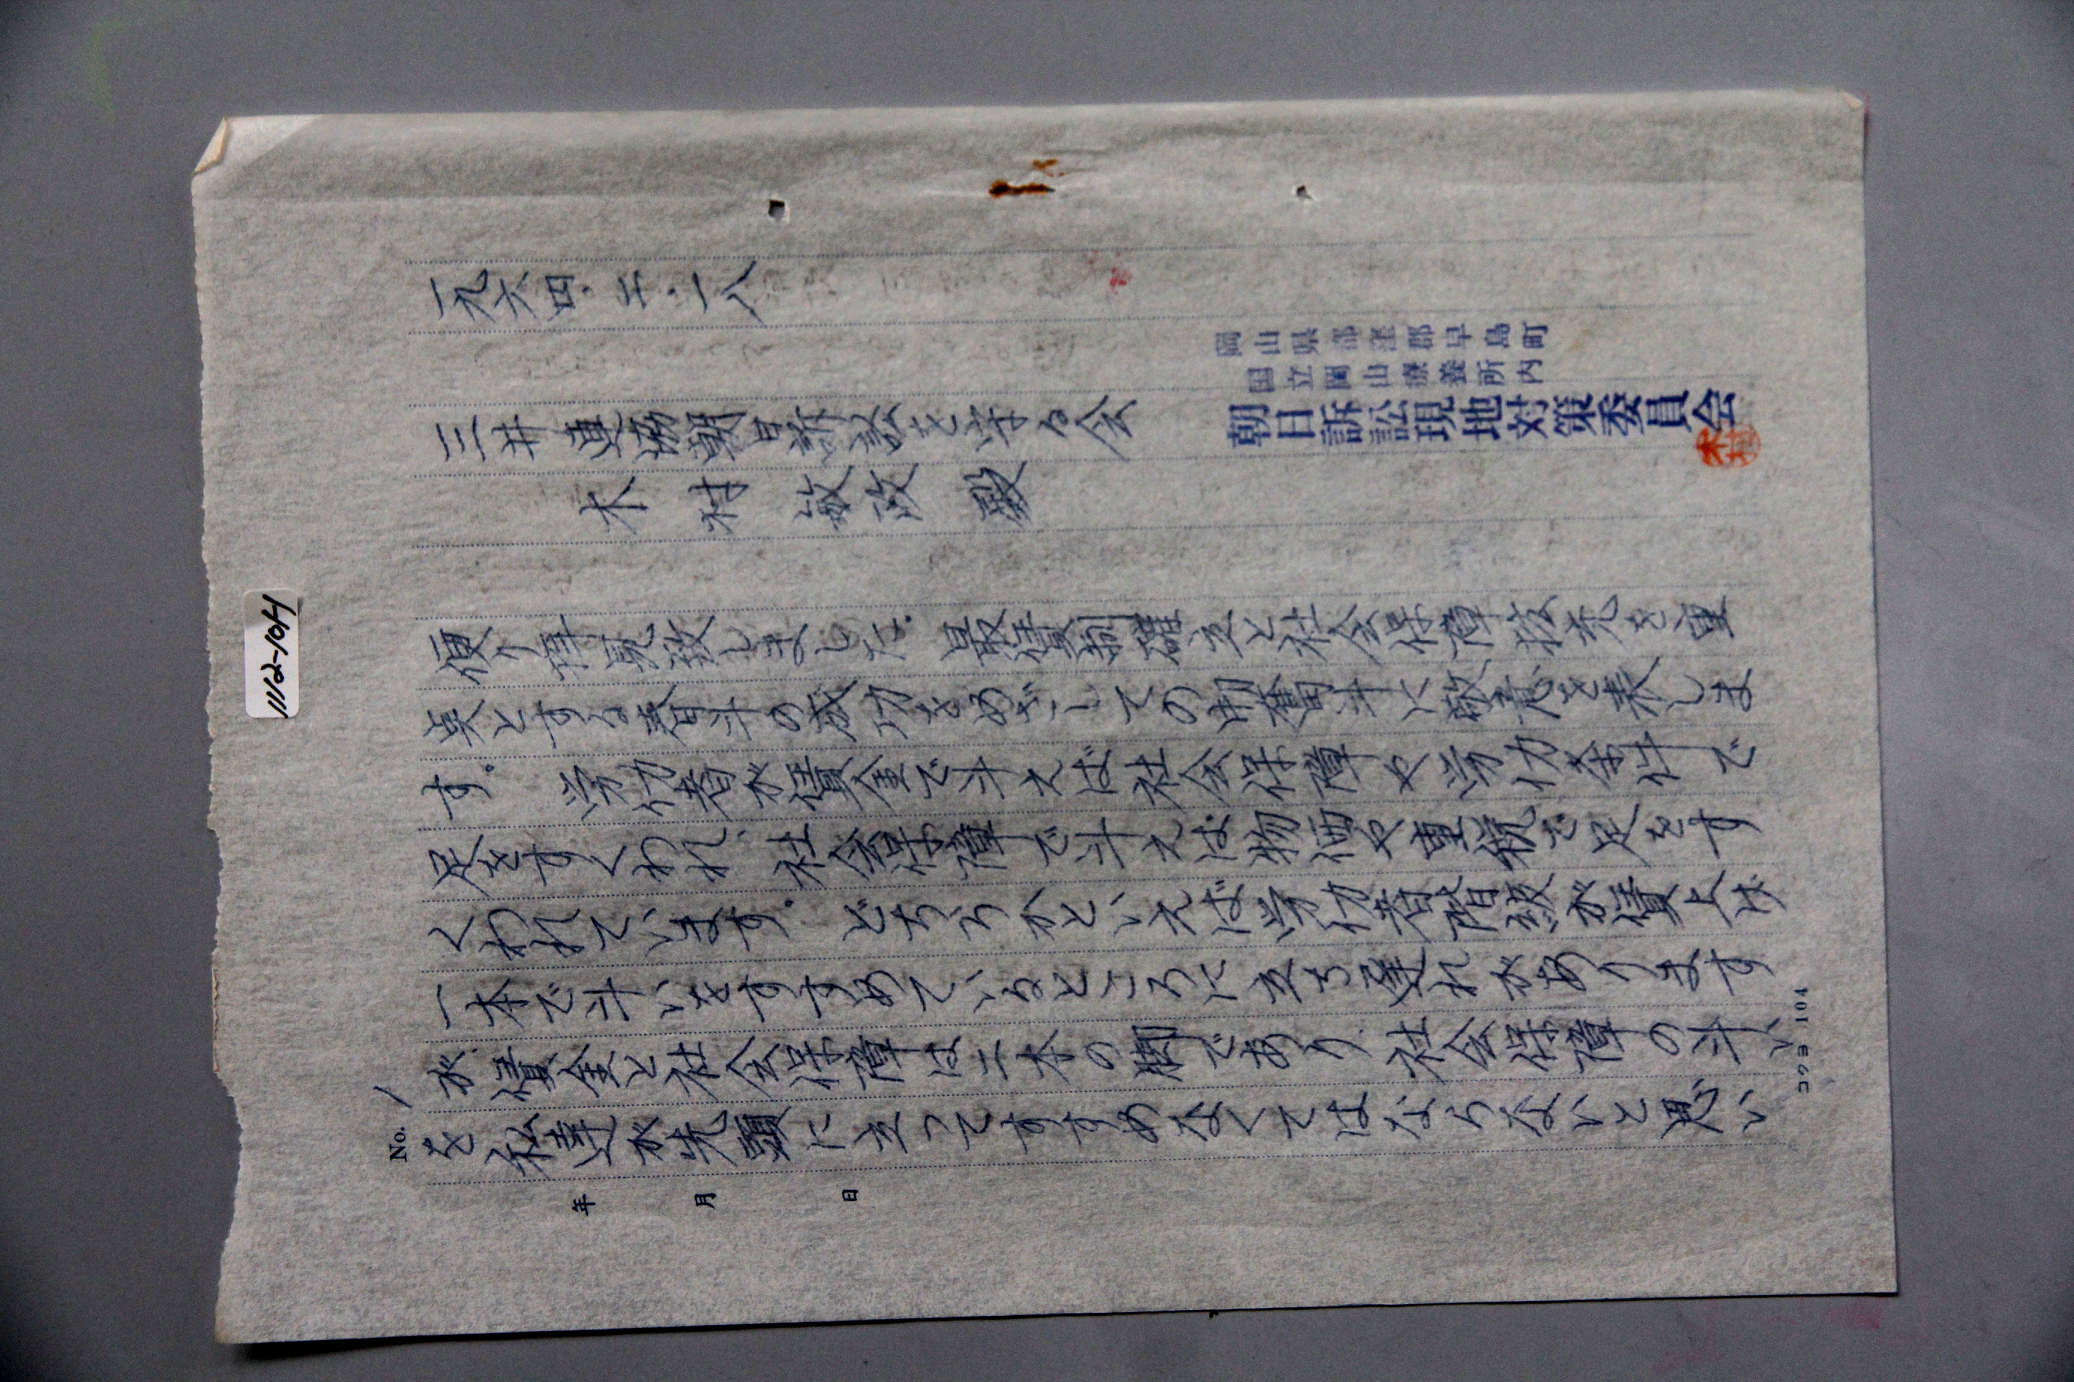 1112-104
一九六四・二・一八
岡山県都窪郡早島町
国立岡山療養所内
朝日訴訟現地対策委員会
木村
三井 真協朝日訴訟を守る会
木村 敏政 殿
便り拝見致しました。最賃制確立と社会保障拡充を重
点とする春斗の成功をめざしての御奮斗に敬意を表しま
す。 労仂者が賃金で斗えば社会保障や労仂条件で
足をすくわれ、社会保障で斗えば物価や重税で足をす
くわれています。どちらかといえば労仂者階級が賃上げ
一本で斗いをすすめているところに立ち遅れがあります
が、賃金と社会保障は二本の脚であり、社会保障の斗い
を私達が先頭に立ってすすめなくてはならないと思い
No. 1
年 月 日
コクヨ 101